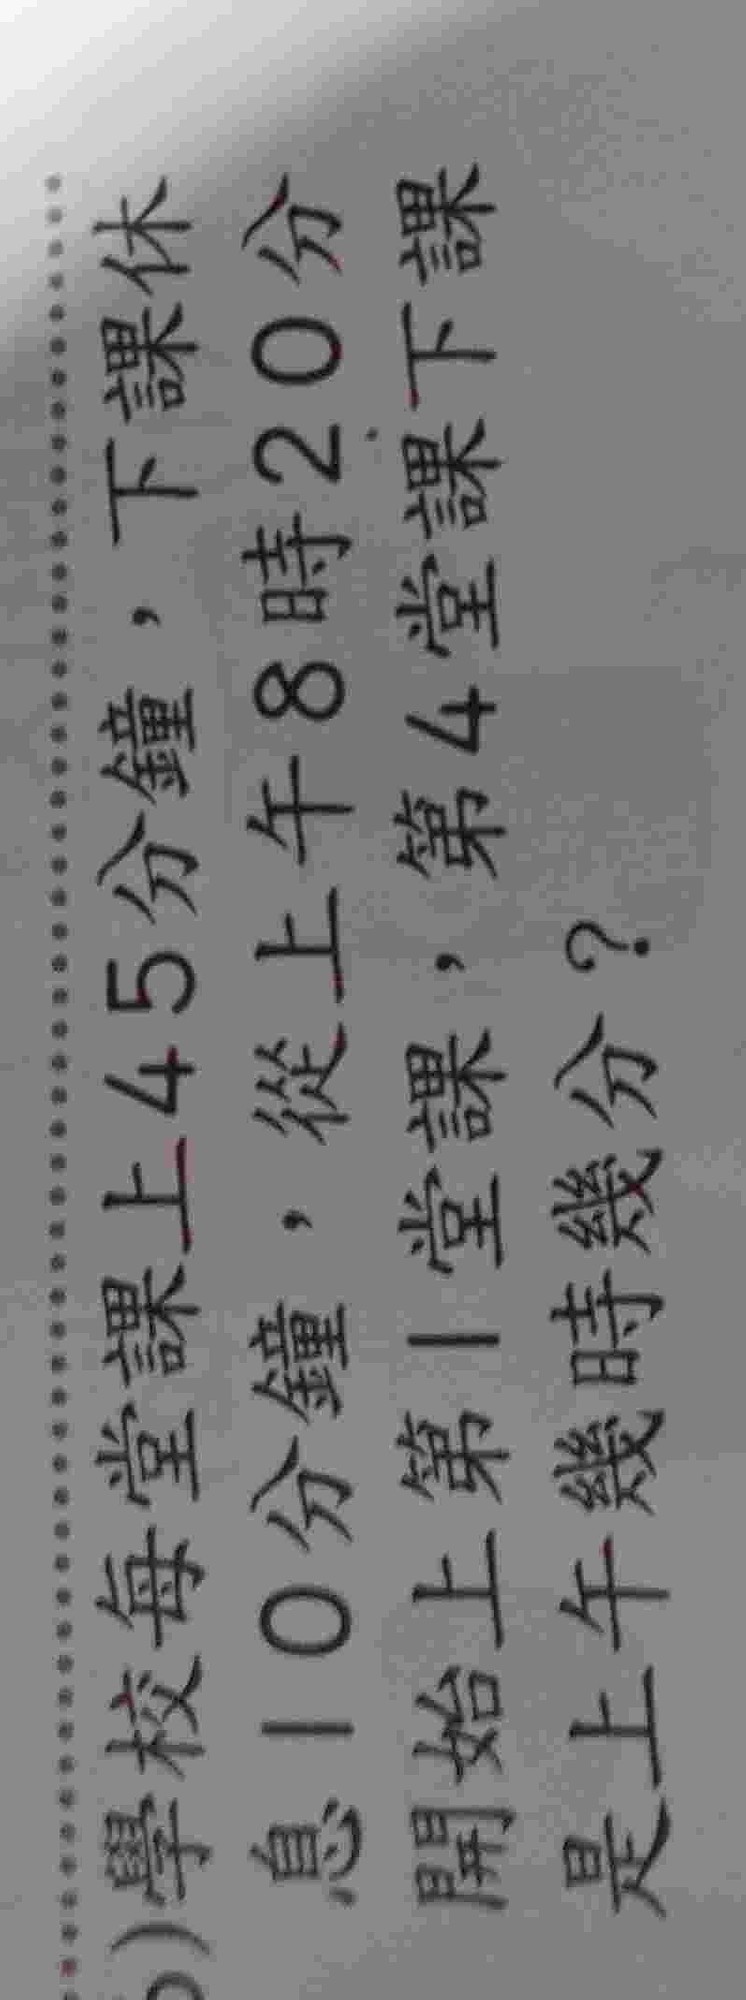 )學校每堂課上45分鐘，下課休
息10分鐘，從上午8時20分
開始上第1堂課，第4堂課下課
是上午幾時幾分？